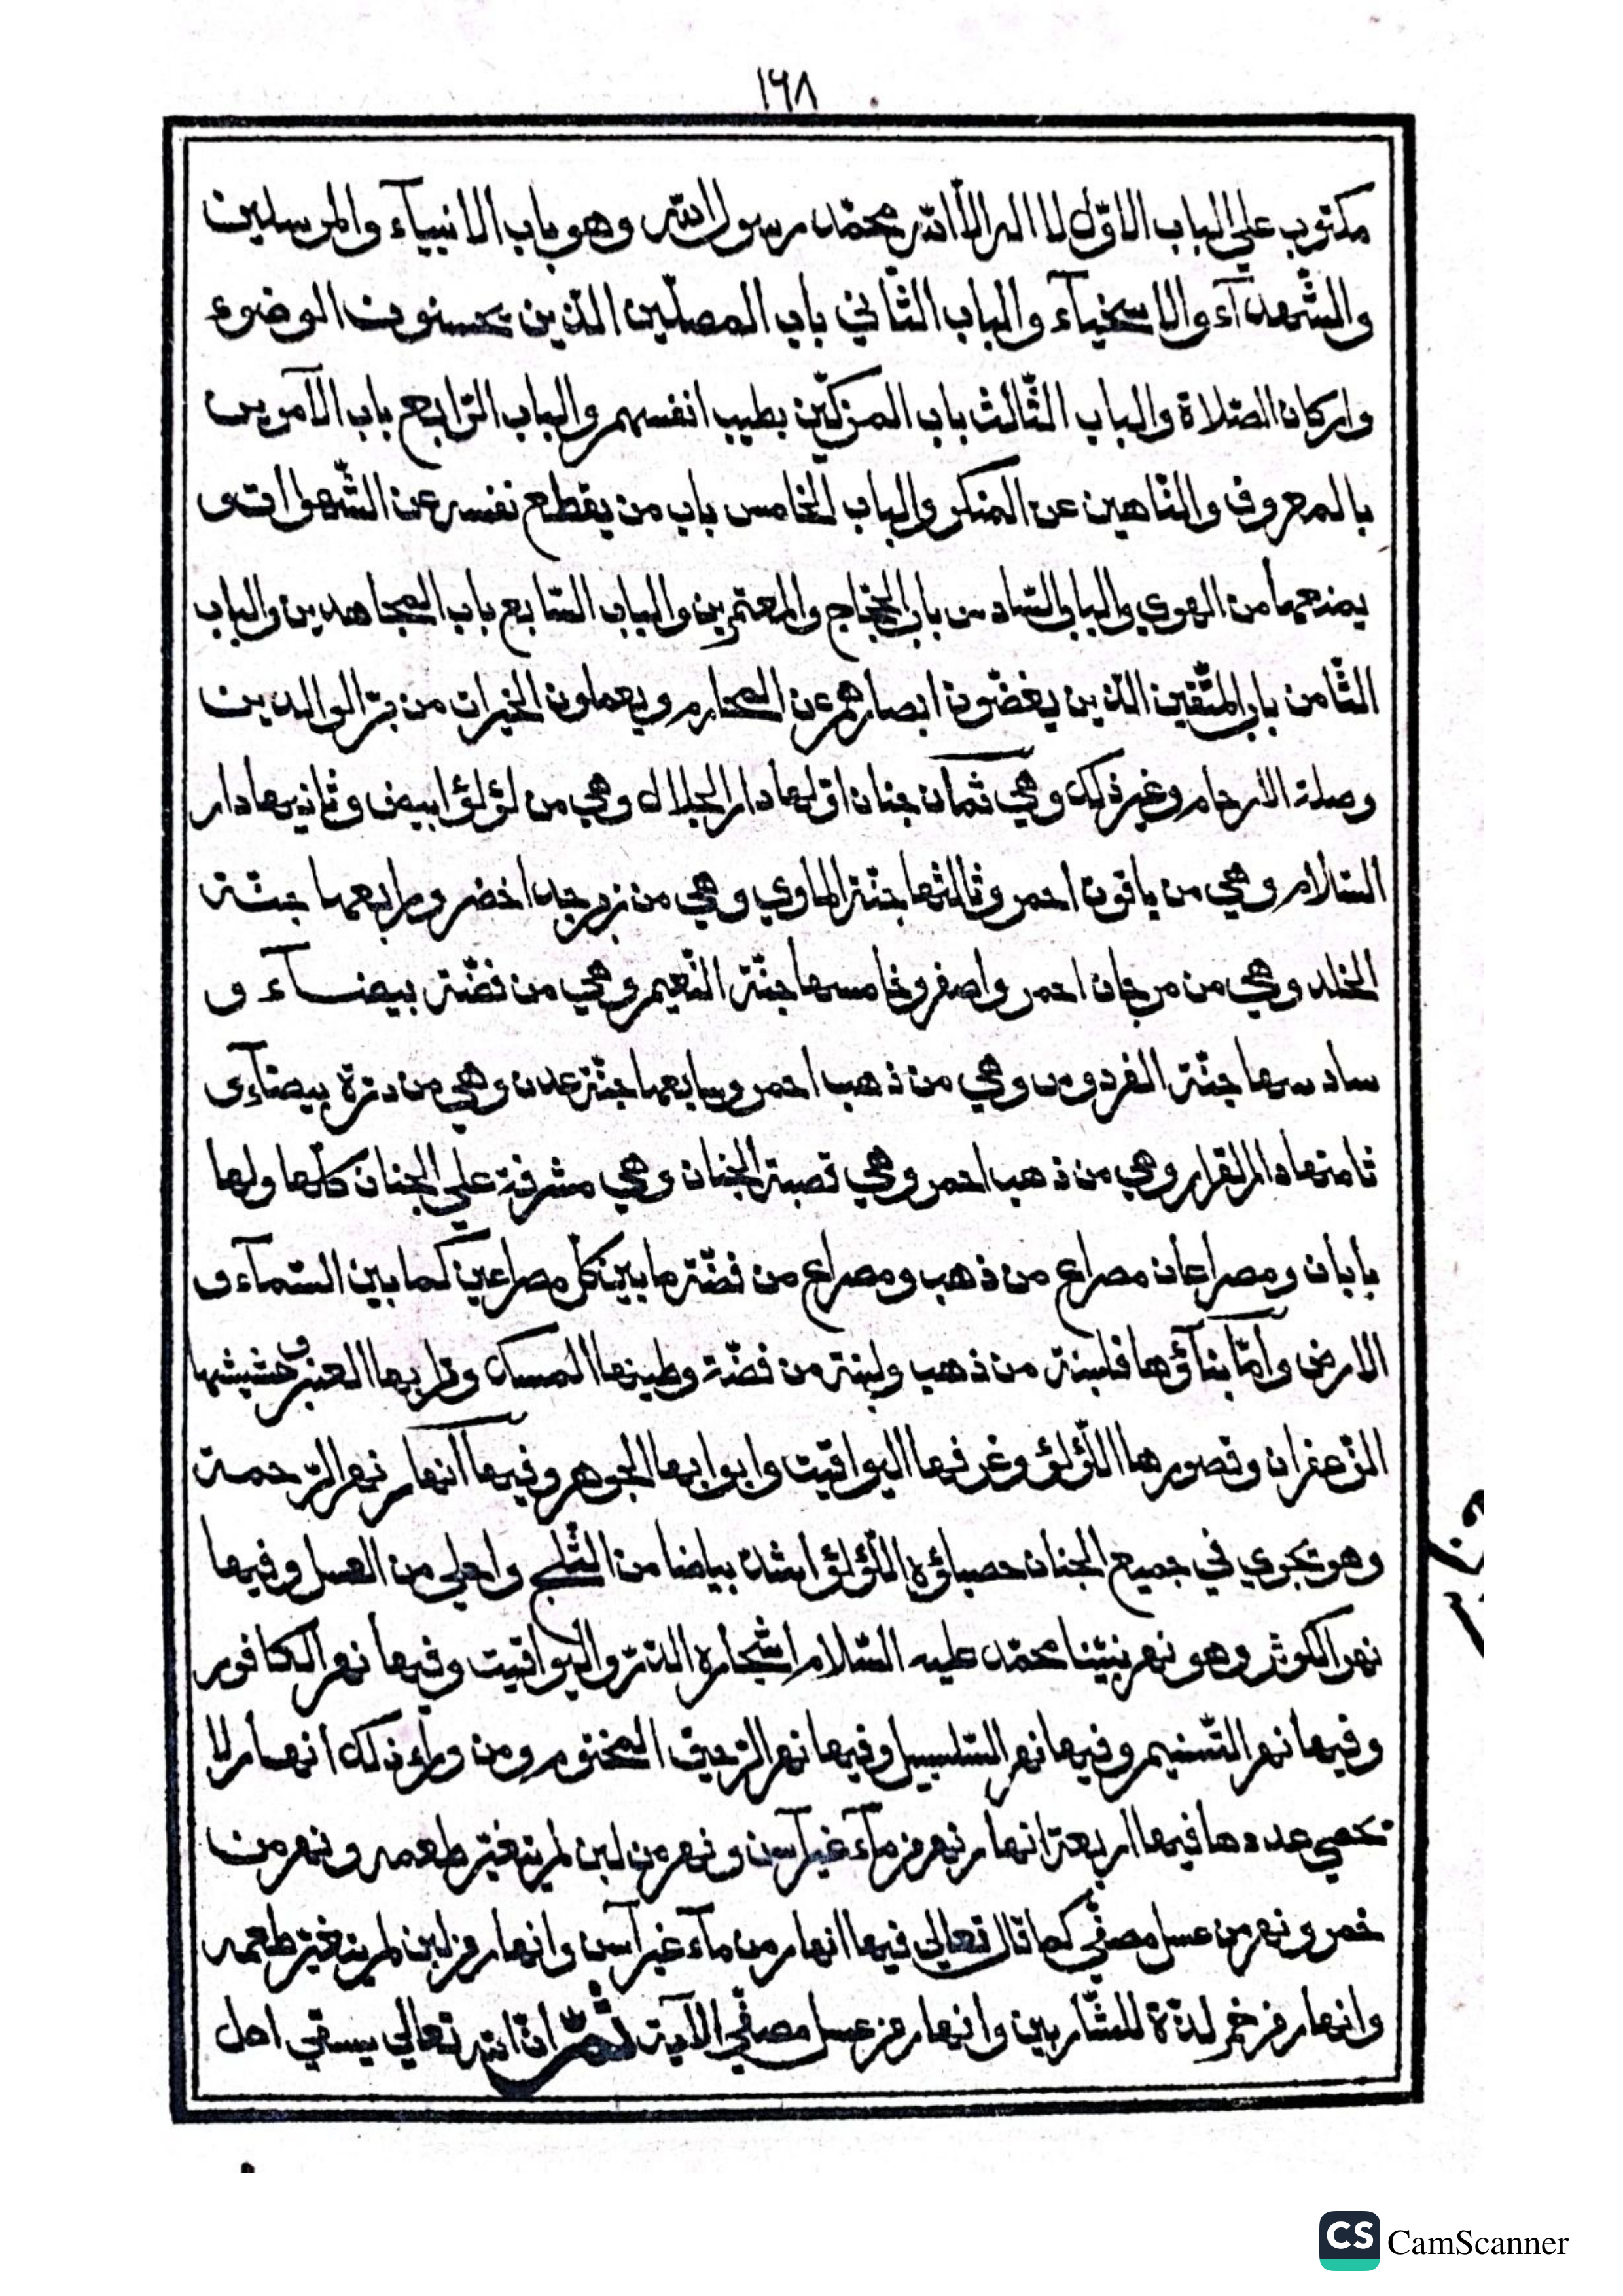 ١٦٨
مكتوب علي الباب الاوّل لا اله الّا الله محمّد رسول الله وهو باب الانبيآء والمرسلين
والشّهدآء والاسخيآء والباب الثّاني باب المصلّين الذين يحسنون الوضوء
واركان الصّلاة والباب الثّالث باب المزكّين بطيب انفسهم والباب الرّابع باب الآمرين
بالمعروف والنّاهين عن المنكر والباب الخامس باب من يقطع نفسه عن الشّهوات و
يمنعها من الهوي والباب السّادس باب الحجّاج والمعتمرين والباب السّابع باب المجاهدين والباب
الثّامن باب المتّقين الذين يغضّون ابصارهم عن المحارم ويعملون الخيرات من برّ الوالدين
وصلة الارحام وغير ذلك وهي ثمان جنان اوّلها دار الجلال وهي من لؤلؤ ابيض وثانيها دار
السّلام وهي من ياقوت احمر وثالثها جنّة الماوي وهي من زبرجد اخضر ورابعها جنّة
الخلد وهي من مرجان احمر واصفر وخامسها جنّة النّعيم وهي من فضّة بيضآء و
سادسها جنّة الفردوس وهي من ذهب احمر وسابعها جنّة عدن وهي من درّة بيضآء و
ثامنها دار القرار وهي من ذهب احمر وهي قصبة الجنان وهي مشرفة علي الجنان كلّها ولها
بابان ومصراعان مصراع من ذهب ومصراع من فضّة ما بين كلّ مصراعين كما بين السّمآء و
الارض وامّا بنآؤها فلبنة من ذهب ولبنة من فضّة وطينها المسك وترابها العنبر وحشيشها
الزّعفران وقصورها اللّؤلؤ وغرفها اليواقيت وابوابها الجوهر وفيها انهار نهر الرّحمة
وهو يجري في جميع الجنان حصباؤه اللّؤلؤ اشدّ بياضا من الثّلج واحلي من العسل وفيها
نهر الكوثر وهو نهر نبيّنا محمّد عليه السّلام اشجاره الدّرّ واليواقيت وفيها نهر الكافور
وفيها نهر التّسنيم وفيها نهر السّلسبيل وفيها نهر الرّحيق المختوم ومن ورآء ذلك انهار لا
تحصي عددها فيها اربعة انهار نهر من مآء غير آسن ونهر من لبن لم يتغيّر طعمه ونهر من
خمر ونهر من عسل مصفّي كما قال تعالي فيها انهار من مآء غير آسن وانهار من لبن لم يتغيّر طعمه
وانهار من خمر لذّة للشّاربين وانهار من عسل مصفّي الآية ثمّ انّ الله تعالي يسقي اهل
CS CamScanner